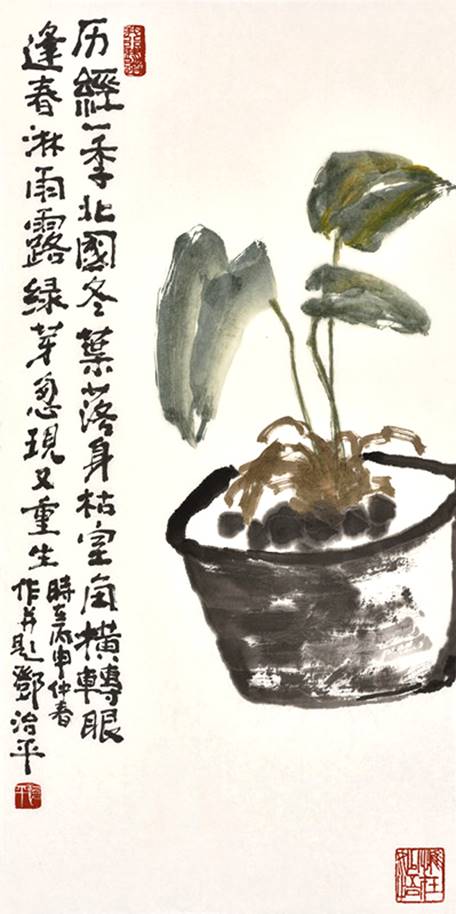 历經一季北國冬葉落身枯室角橫轉眼
逢春淋雨露緑芽忽現又重生
時在丙申仲春
作并題鄧治平